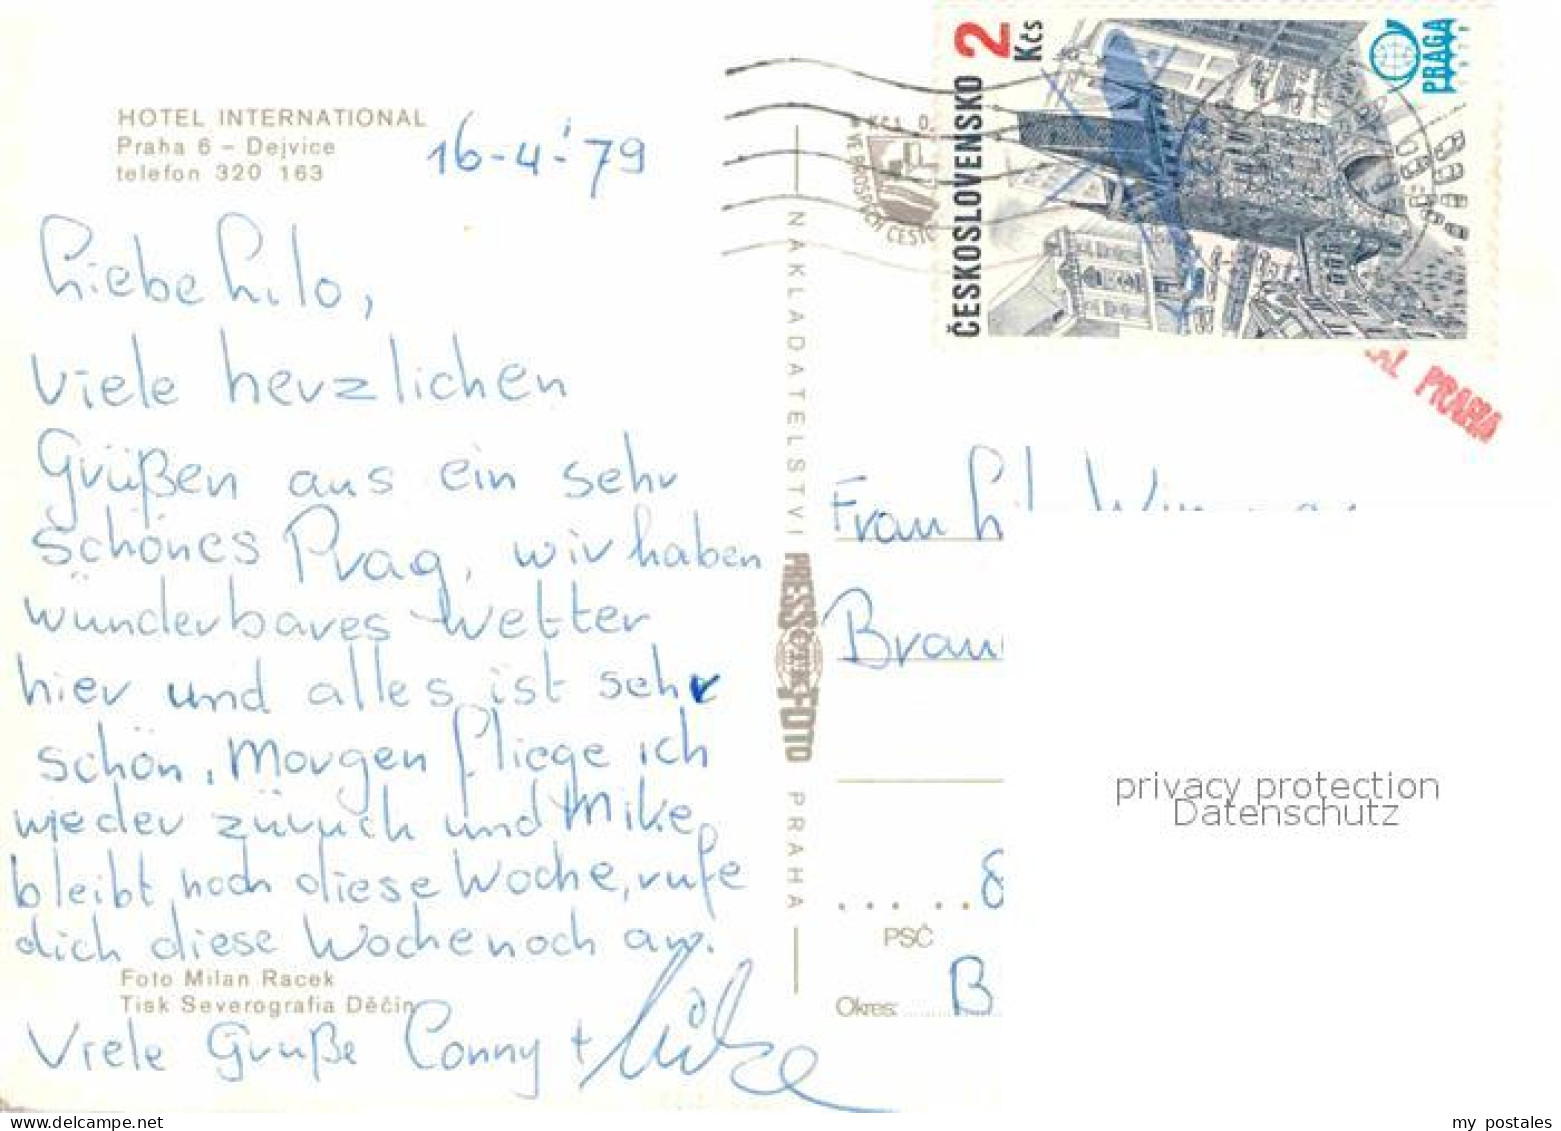 HOTEL INTERNATIONAL
Praha 6 – Dejvice
telefon 320 163
16-4-'79
Liebe Lilo,
Viele herzlichen
Grüßen aus ein sehr
schönes Prag, wir haben
wünderbares Wetter
hier und alles ist sehr
schön, Morgen fliege ich
wieder zürück und Mike
bleibt noch diese Woche, rufe
dich diese Woche noch an.
Foto Milan Racek
Tisk Severografia Děčín
Viele Grüße Conny + Mike
NAKLADATELSTVÍ PRESSFOTO PRAHA
ČTK
ČESKOSLOVENSKO
2
Kčs
PRAGA
1978
PRAHA
Frau
PSČ
8
Okres:
B
privacy protection
Datenschutz
my postales